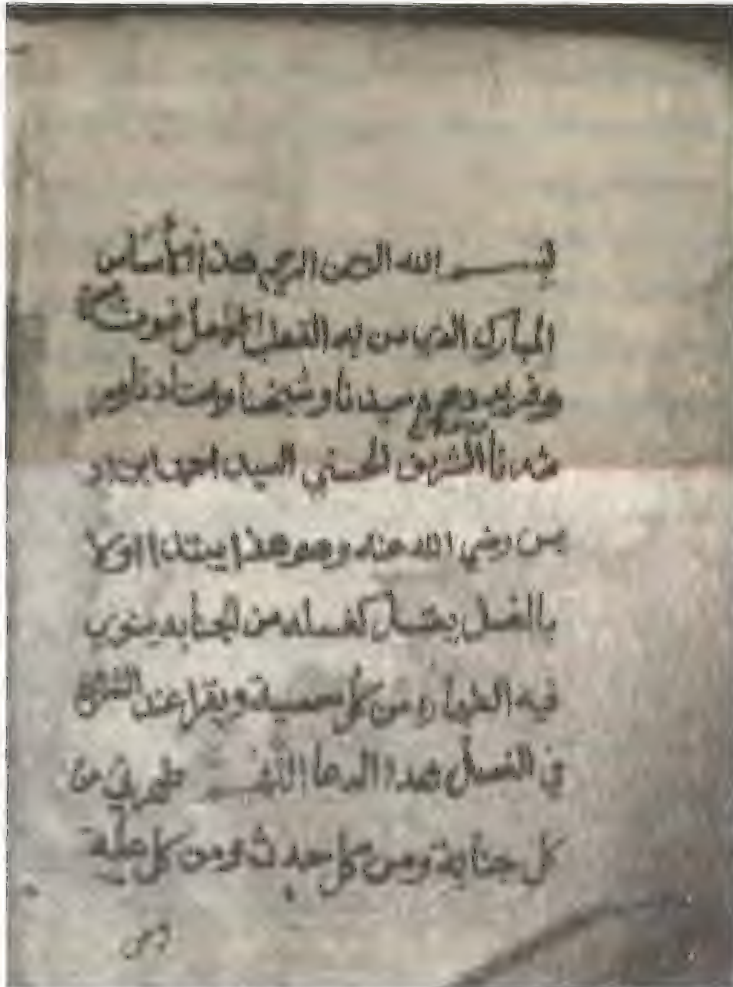 بسم الله الرحمن الرحيم هذا الأساس
المبارك الذي من به القطب غوث
وفريد دهره سيدنا وشيخنا وأستاذنا
مرشدنا الشريف الحسني السيد احمد ابن ادر
يس رضي الله عنه وهو هذا يبتدا اولا
بالغسل يغتسل كغسله من الجنابه ينوي
فيه الطهاره من كل معصية ويقرا عند الشروع
في الغسل بهذا الدعا اللهم طهرني من
كل جنابة ومن كل حدث ومن كل علة